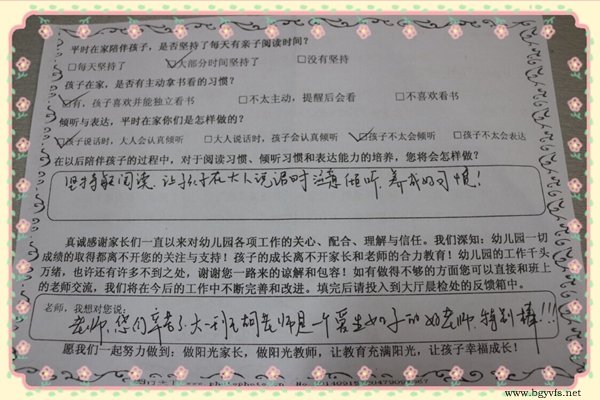 平时在家陪伴孩子，是否坚持了每天有亲子阅读时间？
□每天坚持了 ☑大部分时间坚持了 □没有坚持
孩子在家，是否有主动拿书看的习惯？
☑有，孩子喜欢并能独立看书 □不太主动，提醒后会看 □不喜欢看书
倾听与表达，平时在家你们是怎样做的？
☑孩子说话时，大人会认真倾听 □大人说话时，孩子会认真倾听 ☑孩子不太会倾听 □孩子不太会表达
在以后陪伴孩子的过程中，对于阅读习惯、倾听习惯和表达能力的培养，您将会怎样做？
坚持阅读 让孩子在大人说话时注意倾听 养成好习惯！
真诚感谢家长们一直以来对幼儿园各项工作的关心、配合、理解与信任。我们深知：幼儿园一切
成绩的取得都离不开您的关注与支持！孩子的成长离不开家长和老师的合力教育！幼儿园的工作千头
万绪，也许还有许多不到之处，谢谢您一路来的谅解和包容！如有做得不够的方面您可以直接和班上
的老师交流，我们将在今后的工作中不断完善和改进。填完后请投入到大厅晨检处的反馈箱中。
老师，我想对您说：
老师，您们辛苦了 胡老师是一个爱生如子的好老师，特别棒!!!
愿我们一起努力做到：做阳光家长，做阳光教师，让教育充满阳光，让孩子幸福成长！
www.bgyvfs.net